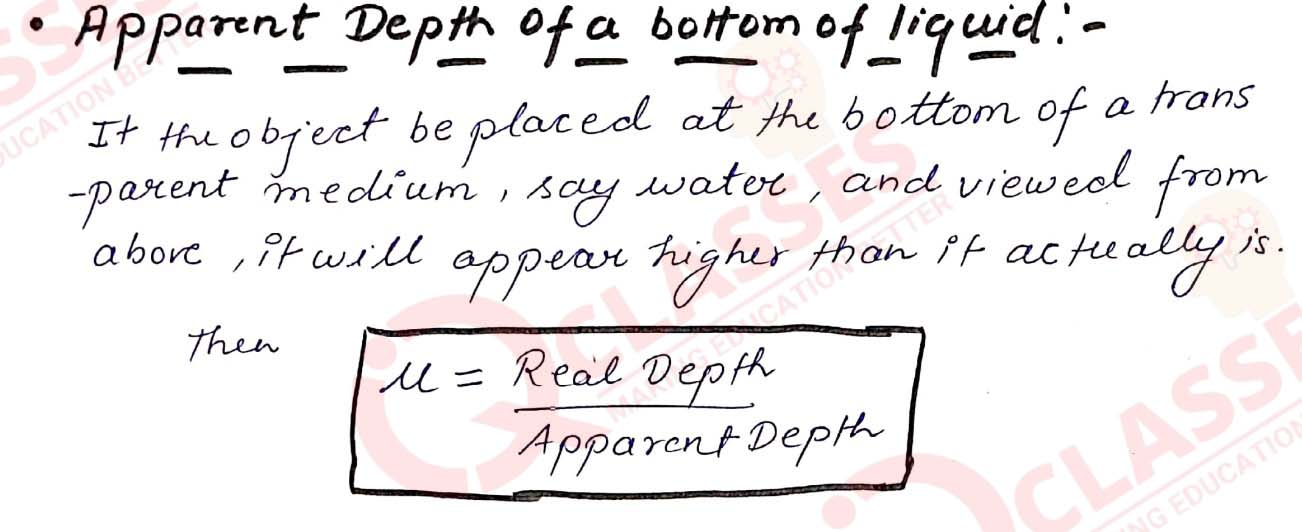 • Apparent Depth of a bottom of liquid:-
If the object be placed at the bottom of a trans
-parent medium, say water, and viewed from
above, it will appear higher than it actually is.
Then
μ = Real Depth
Apparent Depth
CLASSES
MAKING EDUCATION BETTER